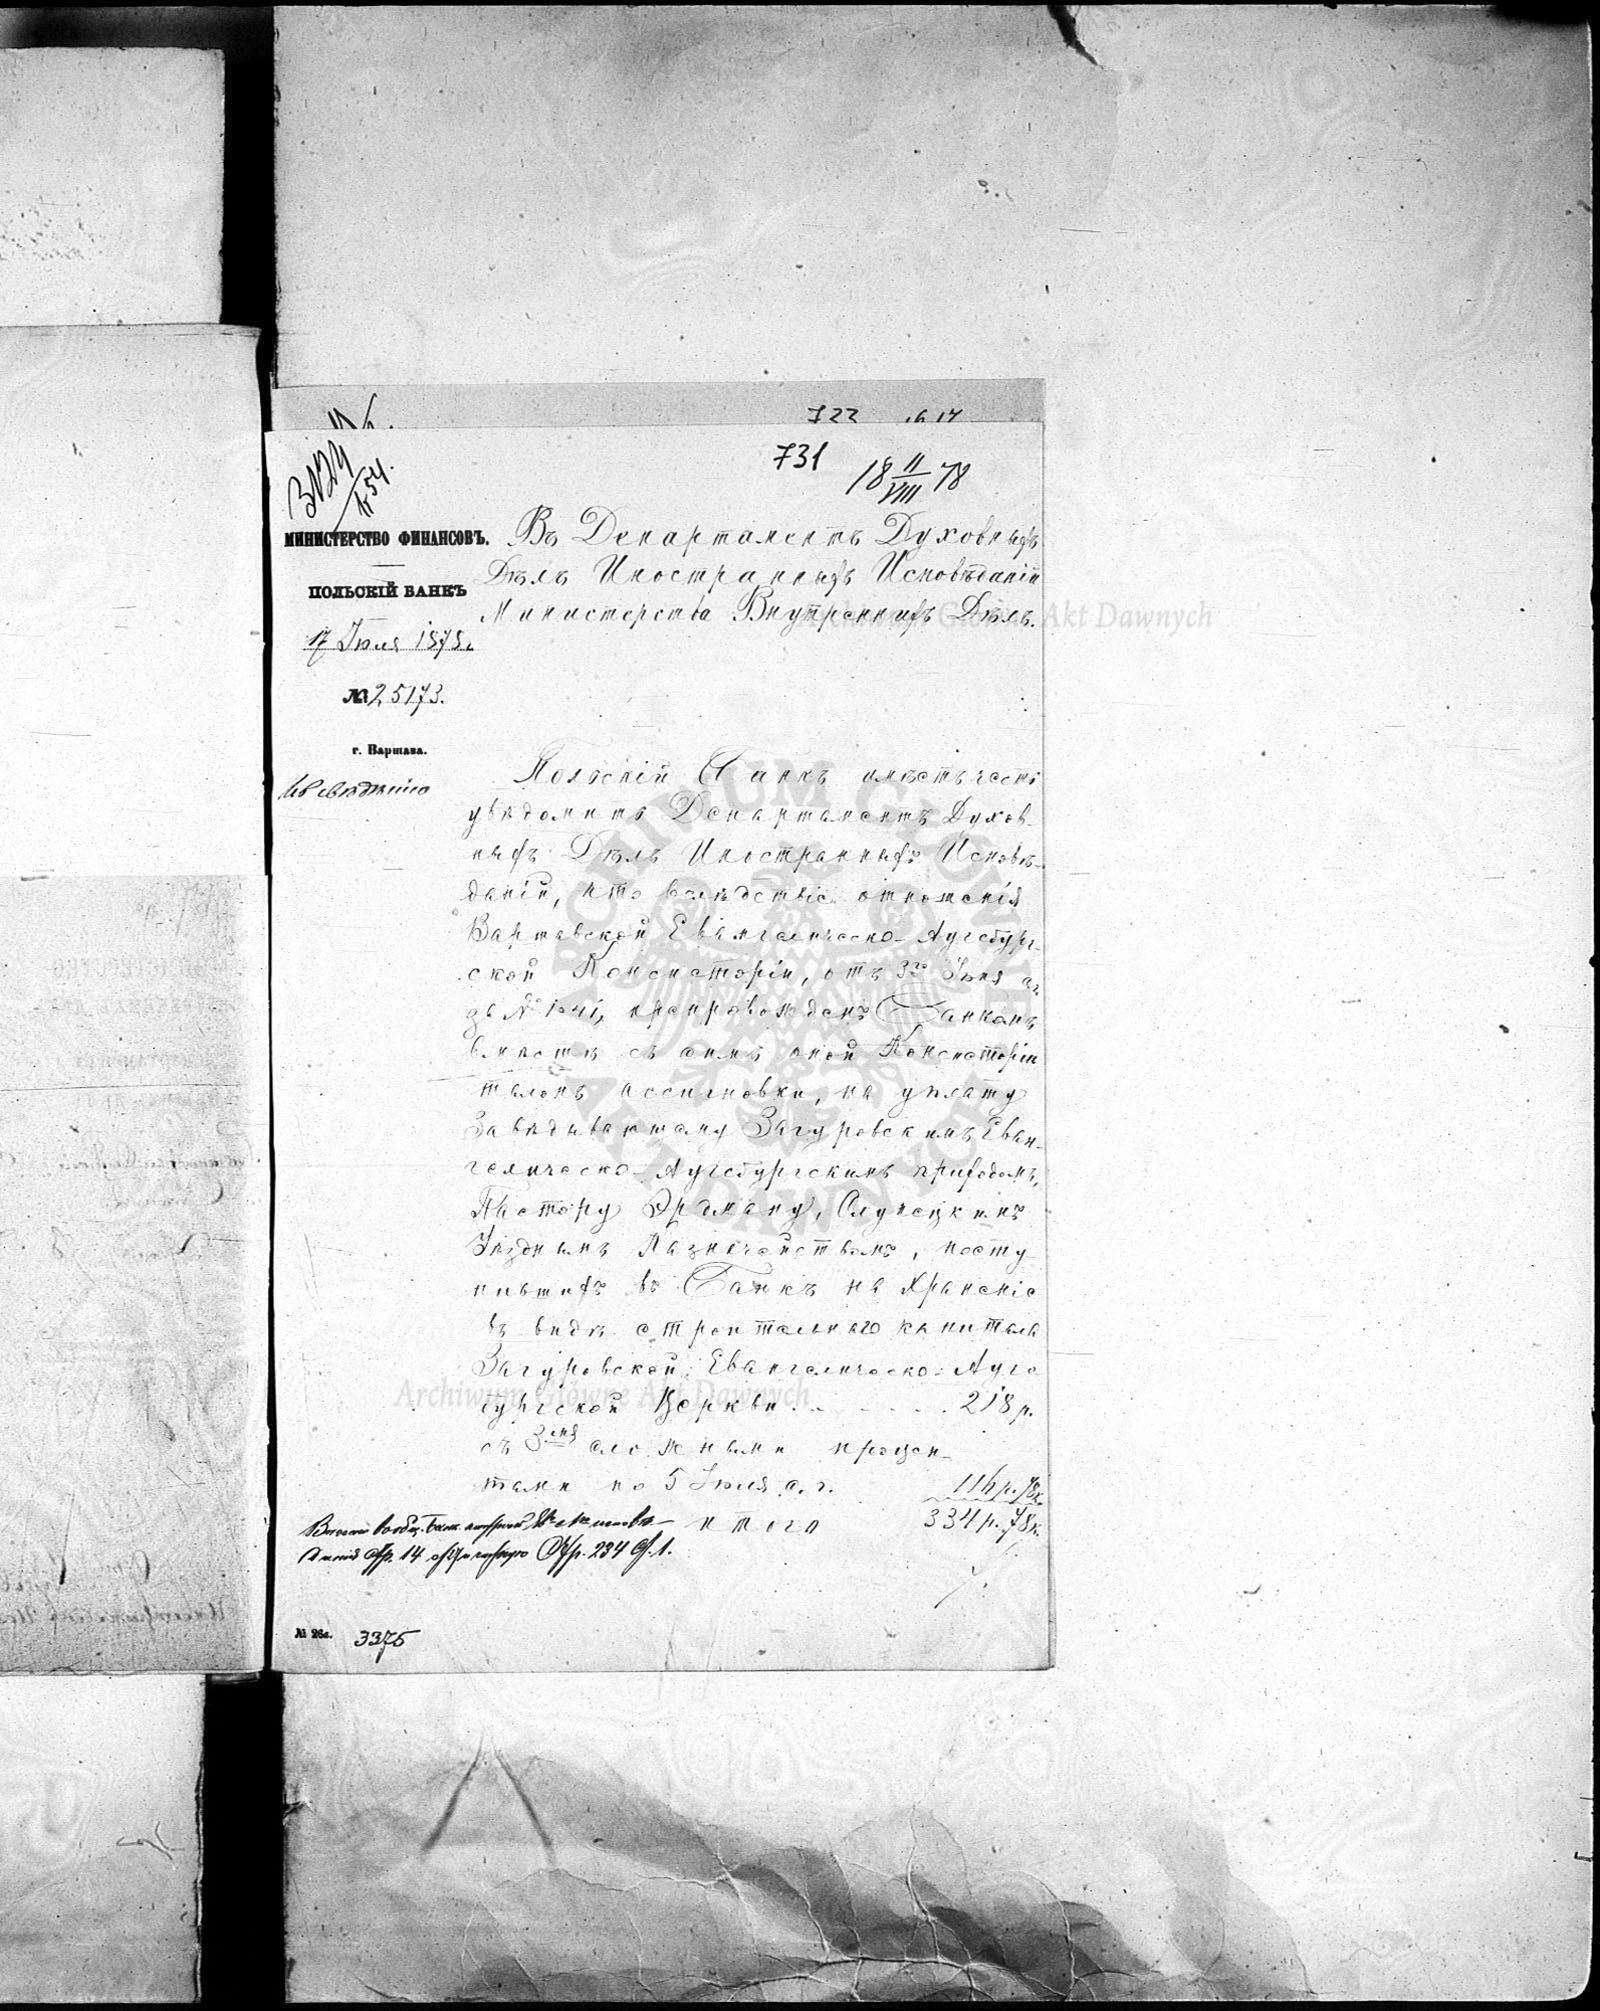 722
731
18 II/VIII 78
МИНИСТЕРСТВО ФИНАНСОВЪ.
ПОЛЬСКІЙ БАНКЪ
17 Іюля 1878 г.
№ 25173.
г. Варшава.
Къ свѣдѣнію
Въ Департаментъ Духовныхъ
Дѣлъ Иностранныхъ Исповѣданій
Министерства Внутреннихъ Дѣлъ.
Польскій Банкъ имѣетъ честь
увѣдомить Департаментъ Духов-
ныхъ Дѣлъ Иностранныхъ Исповѣ-
даній, что вслѣдствіе отношенія
Варшавской Евангелическо-Аугсбург-
ской Консисторіи, отъ 3го Іюня с.г.
за № 1041, препровожденъ Банкомъ
вмѣстѣ съ симъ оной Консисторіи
талонъ ассигновки, на уплату
Завѣдывающему Загуровскимъ Еван-
гелическо-Аугсбургскимъ приходомъ,
Пастору Эрдману, Слупецкимъ
Уѣзднымъ Казначействомъ, посту
пившихъ въ Банкъ на храненіе
въ видѣ строительнаго капитала
Загуровской Евангелическо-Аугс
бургской Церкви . . . . . . 218 р.
съ 3мя сложными процен-
тами по 5 Іюля с. г. 116 р. 78 к.
итого 334 р. 78 к.
стр. 14 Стр. 234 ст. 1.
№ 26а. 3375
Archiwum Główne Akt Dawnych
Archiwum Główne Akt Dawnych
ARCHIWUM GŁÓWNE AKT DAWNYCH